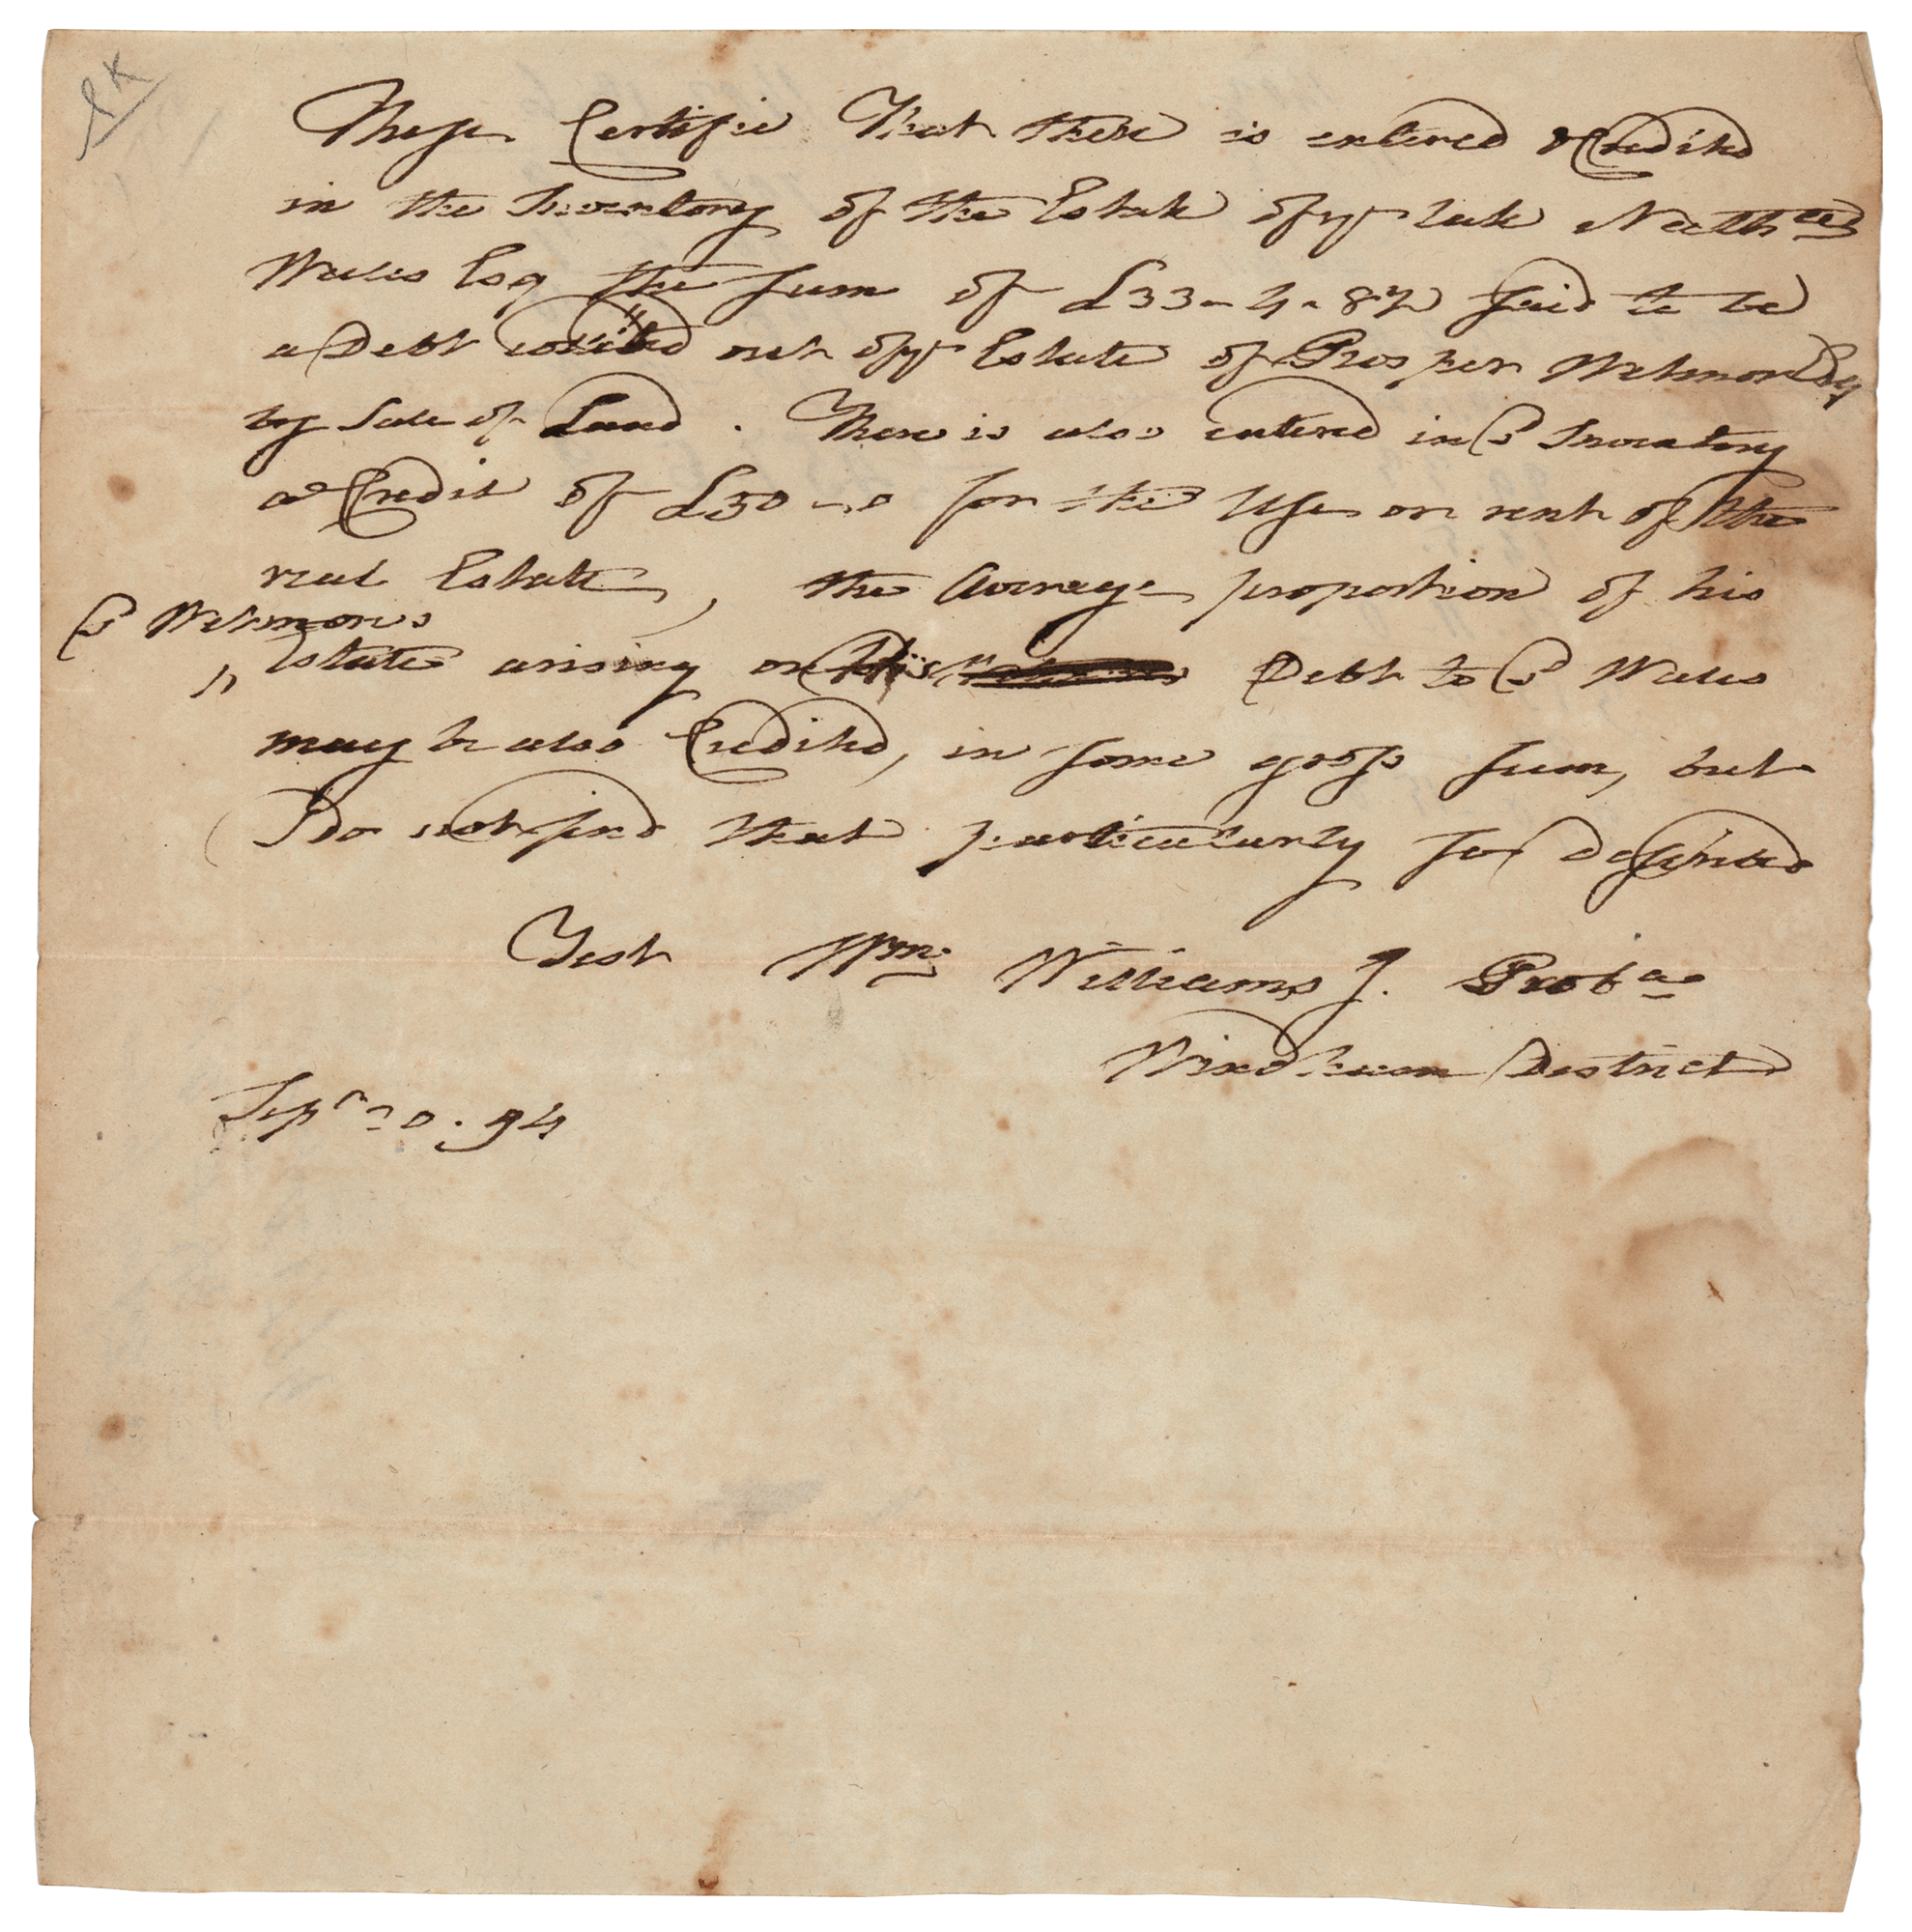 These Certifie That there is entered & Credited
in the Inventory of the Estate of yr late Nathel
Wales Esq the sum of £33-4-8½ said to be
a Debt out of yr Estate of Prosper Wetmore Esq
by Sale of Land. There is also entered in sd Inventory
a Credit of £30-,0 for the Use or rent of the
real Estate, the Average proportion of his
sd Wetmores
" Estate arising on his Debt to sd Wales
may be also Credited, in some gross sum, but
I do not find that particularly so defined
Test Wm Williams J. Probae
Windham District
Sepr 20. 94